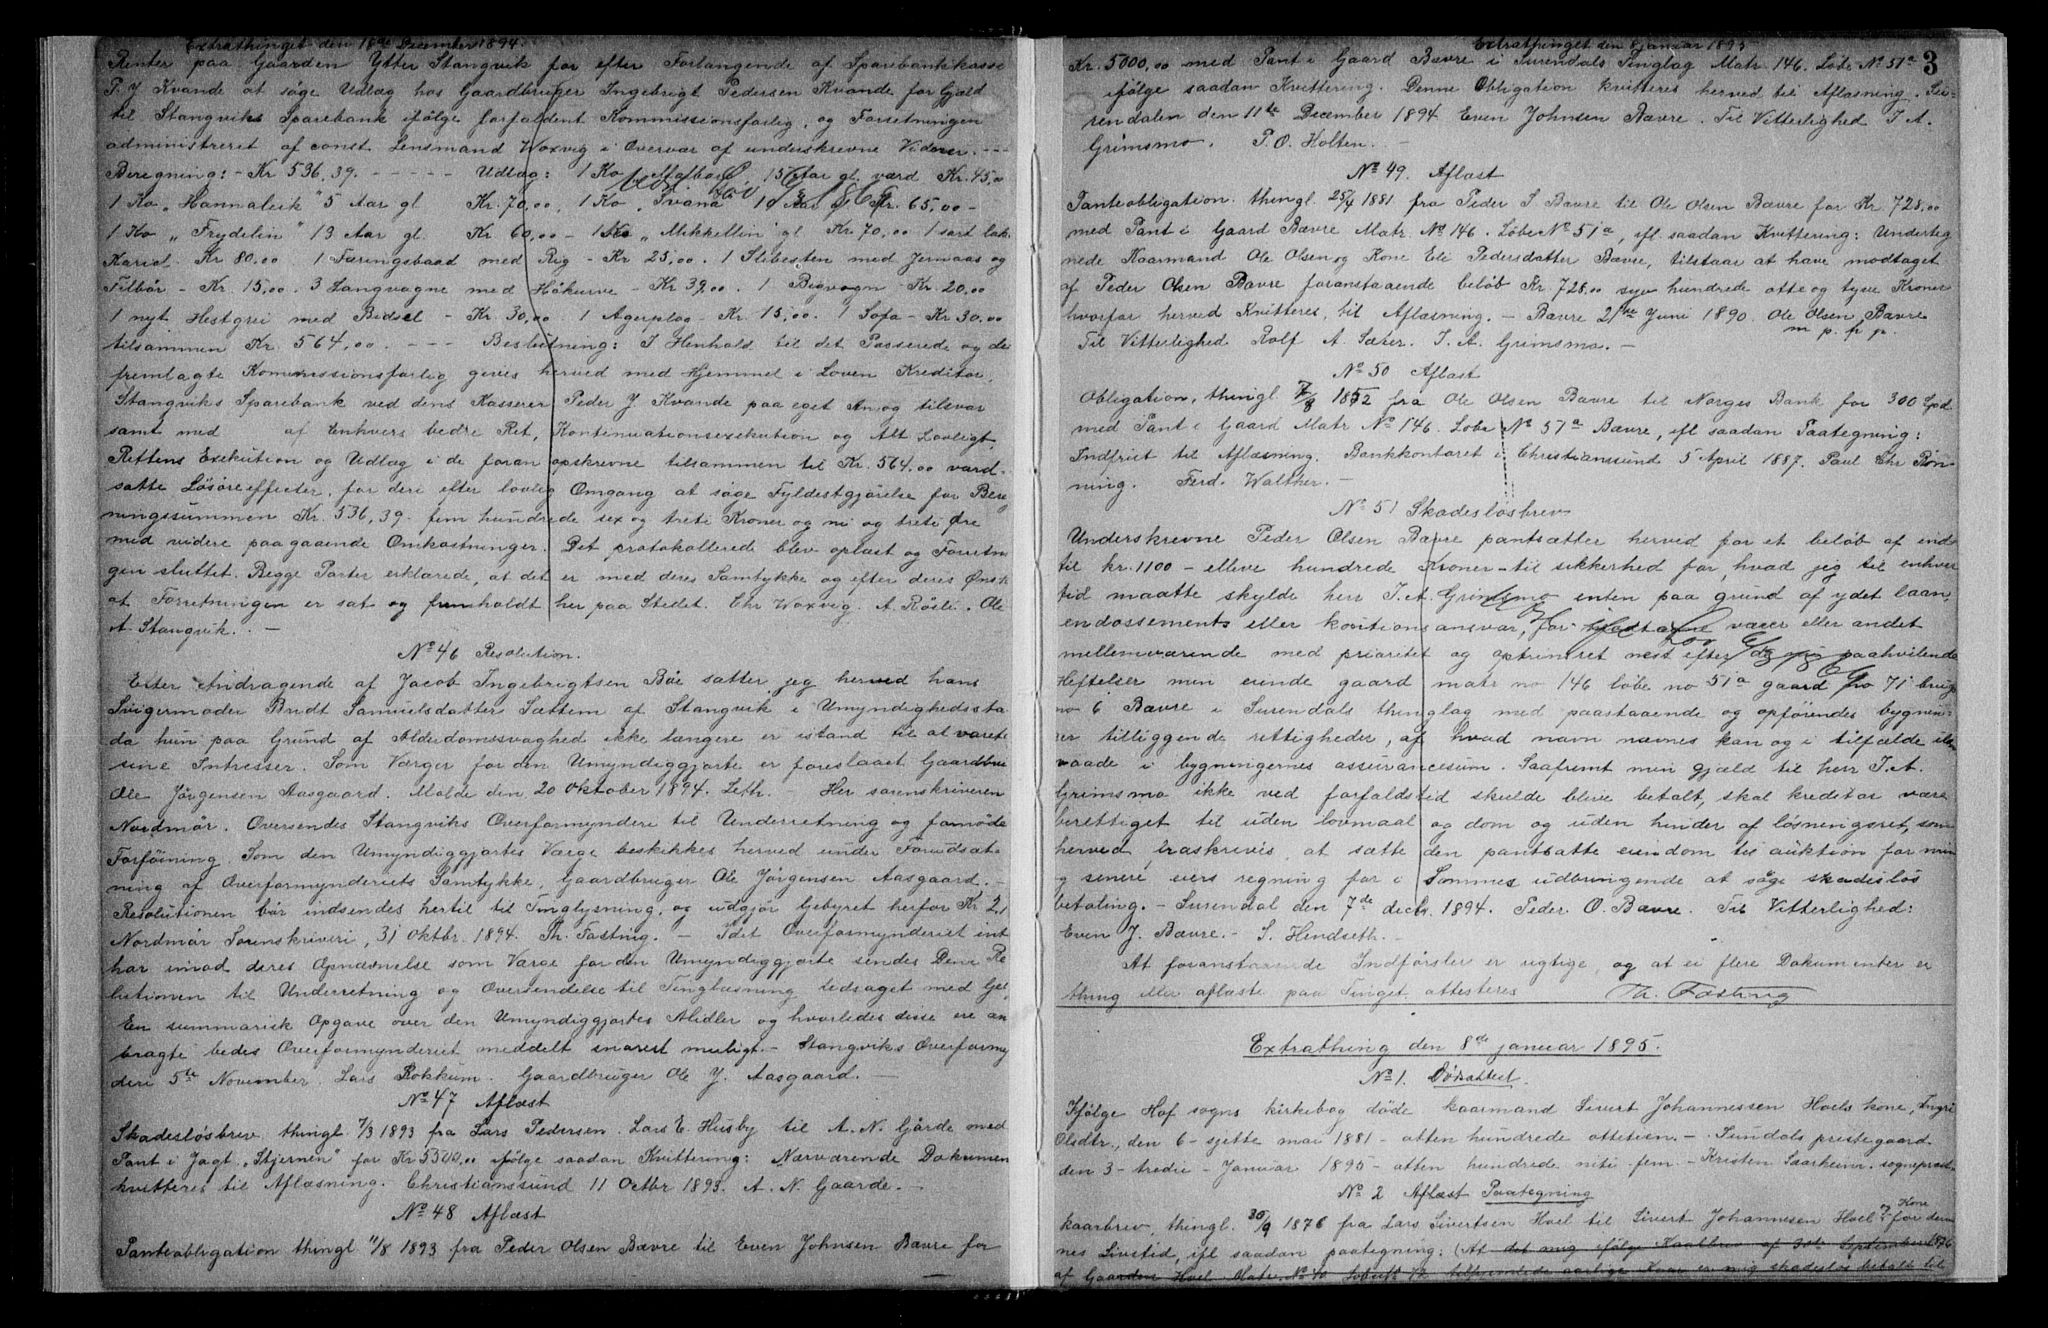 Extrathinget den 18de December 1894.
Renter paa Gaarden Ytter Stangvik for efter Forlangende af Sparebankkasse
P. J. Kvande at søge Udlæg hos Gaardbruger Ingebrigt Pedersen Kvande for Gjæld
til Stangviks Sparebank ifølge forfaldent Kommissionsforlig, og Forretningen
administreret af const Lensmand Woxvig i Overvær af underskrevne Vidner. ---
Beregning: - Kr 536,39. ----- Udlæg: 1 Ko 15 Aar gl. værd Kr. 45,00
1 Ko „Hannaleik" 5 Aar gl Kr. 70,00, 1 Ko 10 Aar Kr. 65,00 -
1 Ko „Frydelin" 13 Aar gl. Kr 60,00 - 1 Ko „Mikkellin" gl. Kr 70,00 1 sort
Kr 80,00 1 Færingsbaad med Rig - Kr 25,00. 1 med og
Tilbør - Kr. 15,00. 3 Langvogne med Høkurve - Kr 39,00. 1 Kr. 20,00
1 nyt Hestgrei med Bidsel - Kr 30,00. 1 Agerplog - Kr 15,00. 1 Sofa - Kr 30.00
tilsammen Kr. 564,00. --- Beslutning: I Henhold til det Passerede og de
fremlagte Kommissionsforlig gives herved med Hjemmel i Loven Kreditor,
Stangviks Sparebank ved dens Kasserer Peder J Kvande paa eget An og tilsvar
samt med af Enhvers bedre Ret, Kontinuationsexekution og Alt Lovligt,
Rettens Exekution og Udlæg i de foran opskrevne tilsammen til Kr. 564.00 værd-
satte Løsøreeffecter, for deri efter lovlig Omgang at søge Fyldestgjørelse for Bereg
ningssummen Kr. 536,39 fem hundrede sex og treti Kroner og ni og treti Øre
med videre paagaaende Omkostninger. Det protokollerede blev oplæst og Forretnin
gen sluttet. Begge Parter erklærede, at det er med deres Samtykke og efter deres Ønske
at Forretningen er sat og fremholdt her paa Stedet. Chr Woxvig. A. Røsli. Ole
A Stangvik. -
No 46 Resolution.
Efter Andragende af Jacob Ingebrigtsen Bøe sætter jeg herved hans
Svigermoder Bridt Samuelsdatter Sættem af Stangvik i Umyndighedssta
da hun paa Grund af Alderdomssvaghed ikke længere er istand til at varete
sine Intresser. Som Værger for den Umyndiggjorte er foreslaaet Gaardbru
Ole Jørgensen Aasgaard. Molde den 20 Oktober 1894. Leth. - Her sorenskriveren
Nordmør. Oversendes Stangviks Overformynderi til Underretning og fornøde
Forføining. Som den Umyndiggjortes Værge beskikkes herved under Forudsæt-
ning af Overformynderiets Samtykke, Gaardbruger Ole Jørgensen Aasgaard. -
Resolutionen bør indsendes hertil til Tinglysning, og udgjør Gebyret herfor Kr 2,1
Nordmør Sorenskriveri, 31 Oktbr. 1894. Th. Fasting. - Idet Overformynderiet int
har imod deres Opnævnelse som Værge for den Umyndiggjorte sendes Dem Re
lutionen til Underretning og Oversendelse til Tinglæsning ledsaget med Geb
En summarisk Opgave over den Umyndiggjortes Midler og hvorledes disse ere an
bragte bedes Overformynderiet meddelt snarest muligt. - Stangviks Overformy
deri 5te November. Lars Rokkum. Gaardbruger Ole J. Aasgaard. -
No 47 Aflæst
Skadesløsbrev thingl. 7/3 1893 fra Lars Pedersen. Lars E. Husby til A. N. Gjørde med
Pant i Jagt „Stjernen" for Kr 5500,00 ifølge saadan Kvittering: Nærværende Dokumen
kvitteres til Aflæsning. Christianssund 11 Octbr 1893. A. N. Gaarde. -
No 48 Aflæst
Panteobligation thingl 11/8 1893 fra Peder Olsen Bævre til Even Johnsen Bævre for
Extrathinget den 8 januar 1895
3
Kr. 5000,00 med Pant i Gaard Bævre i Surendals Tinglag Matr 146. Løbe No 51a
ifølge saadan Kvittering. Denne Obligation kvitteres herved til Aflæsning. Su-
rendalen den 11te December 1894 Even Johnsen Bævre. Til Vitterlighed J. A.
Grimsmo. P. O. Holten. -
No 49. Aflæst
Panteobligation thingl. 25/4 1881 fra Peder S. Bævre til Ole Olsen Bævre for Kr. 728,00
med Pant i Gaard Bævre Matr No 146. Løbe No 51a, ifl saadan Kvittering: Underteg
nede Kaarmand Ole Olsen og Kone Eli Pedersdatter Bævre, tilstaar at have modtaget
af Peder Olsen Bævre foranstaaende beløb Kr. 728,00 syv hundrede otte og tyve Kroner
hvorfor herved Kvitteres, til Aflæsning. - Bævre 21de Juni 1890. Ole Olsen Bævre
m. p. f. p.
Til Vitterlighed Rolf A. Sæter. J. A. Grimsmo. -
No 50 Aflæst
Obligation, thingl 1852 fra Ole Olsen Bævre til Norges Bank for 300 Spd
med Pant i Gaard Matr No 146. Løbe No 51a Bævre, ifl saadan Paategning:
Indfriet til Aflæsning. Bankkontoret i Christianssund 5 April 1887. Paul Chr Røn
ning. Ferd. Walther. -
No 51 Skadesløsbrev
Underskrevne Peder Olsen Bævre pantsætter herved for et beløb af indt
til kr. 1100 - elleve hundrede Kroner - til sikkerhed for, hvad jeg til enhver
tid maatte skylde herr J. A. Grimsmo enten paa grund af ydet laan,
endossements eller kautionsansvar, for varer eller andet
mellemværende med prioritet og optrinsret næst efter paahvilende
Heftelser min eiende gaard matr no 146 løbe no 51a gaard no 71 brugs
no 6 Bævre i Surendals thinglag med paastaaende og opførendes bygnin-
ger tilliggende rettigheder, af hvad navn nævnes kan og i tilfælde ilds
vaade i bygningernes assurancesum. Saafremt min gjæld til herr J. A.
Grimsmo ikke ved forfaldstid skulde blive betalt, skal kreditor være
berettiget til uden lovmaal og dom og uden hinder af løsningsret, som
herved fraskrives, at sætte den pantsatte eiendom til auktion for min
og senere eiers regning for i Sommes udbringende at søge skadesløs
betaling. - Surendal den 7de decbr. 1894. Peder O. Bævre. Til Vitterlighed:
Even J. Bævre. - S. Hendseth. -
At foranstaaende Indførsler er rigtige, og at ei flere Dokumenter er
thing eller aflæste paa Tinget attesteres Th. Fasting
Extrathing den 8de januar 1895.
No 1. Dødsattest.
Ifølge Hof sogns kirkebog døde kaarmand Sivert Johannessen Hoels kone, Ingri
Olsdtr., den 6 - sjette mai 1881 - atten hundrede ottetien. - Sundals prestegaard
den 3 - tredie - Januar 1895 - atten hundrede niti fem. - Kristen Saarheim. sogneprest
No 2 Aflæst Paategning
Kaarbrev, thingl. 30/9 1876 fra Lars Sivertsen Hoel til Sivert Johannesen Hoel og Kone for dem
nes Livstid, ifl saadan paategning: (At det mig ifølge Kaarbrev af 30te September 1876
af Gaarden Hoel Matr. No 40 tilkommende aarlige Kaar er mig skadesløs betalt til